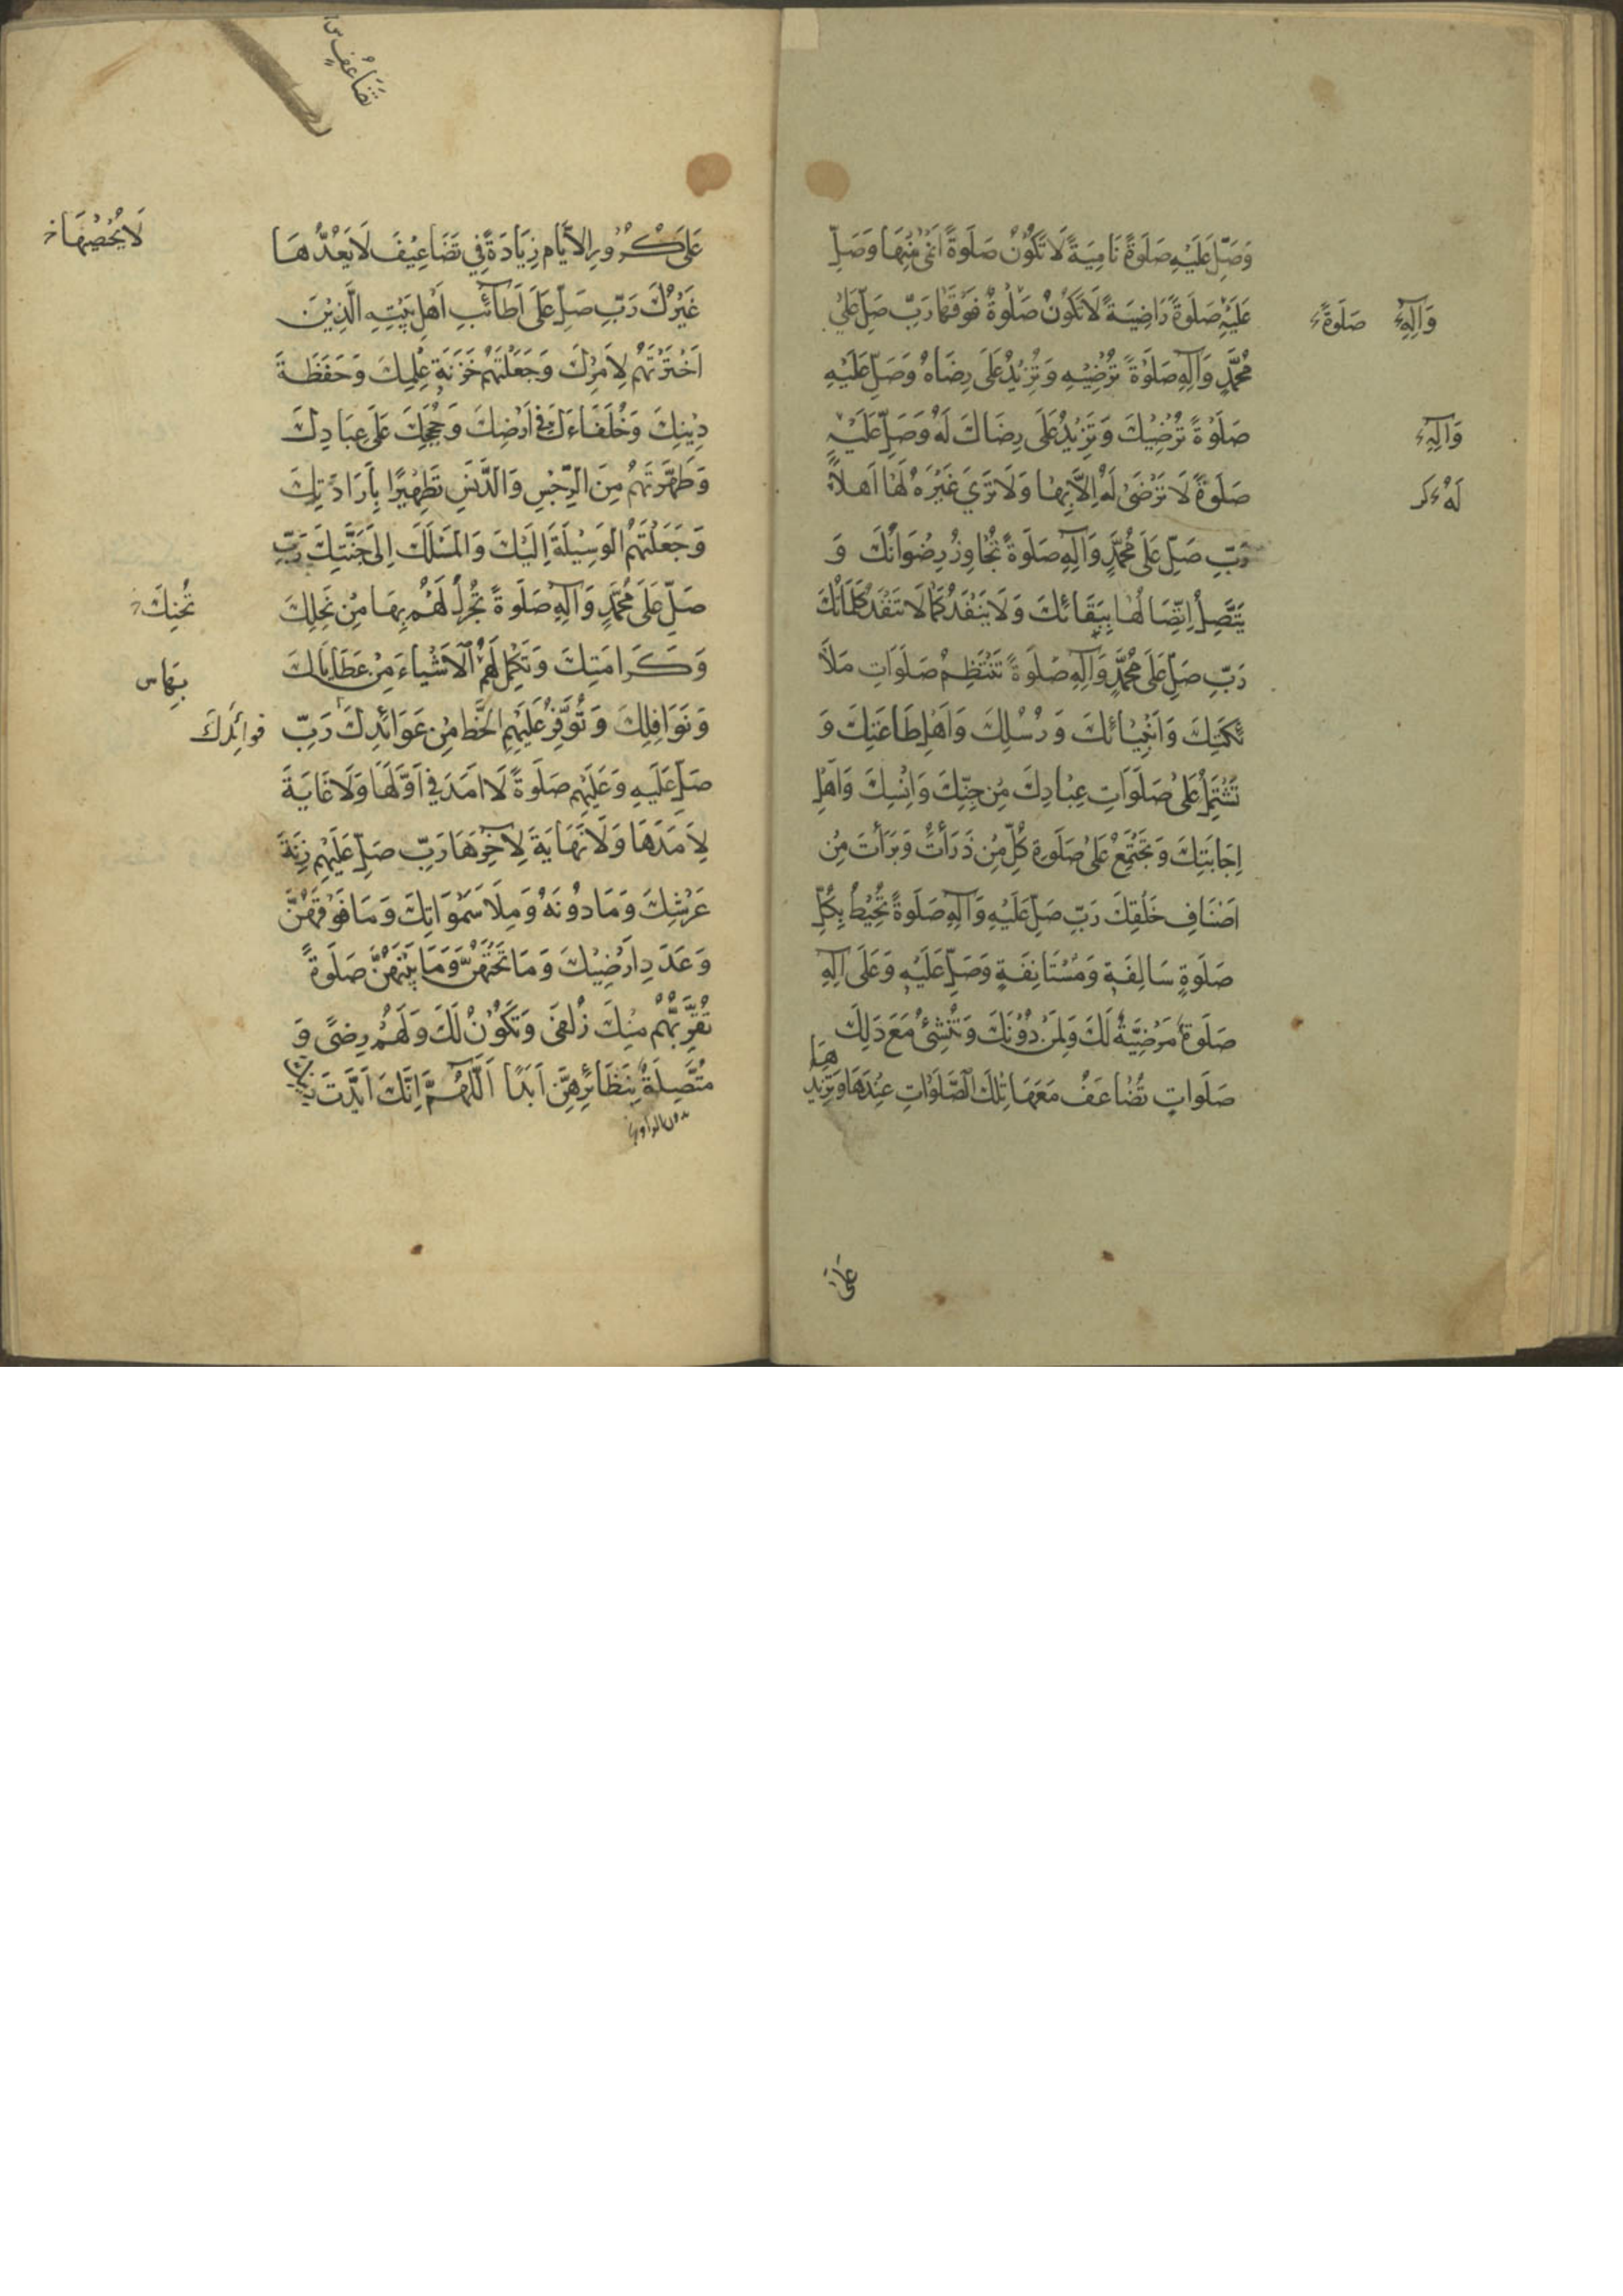 وَصَلِّ عَلَيْهِ صَلَوةً نَامِيَةً لَا تَكُونُ صَلَوةً اَنْمَى مِنْهَا وَصَلِّ
عَلَيْهِ صَلَوةً رَاضِيَةً لَا تَكُونُ صَلَوةٌ فَوْقَهَا رَبِّ صَلِّ عَلَى
وَآلِهِ صَلَوةً
مُحَمَّدٍ وَآلِهِ صَلَوةً تُرْضِيْهِ وَتَزِيْدُ عَلَى رِضَاهُ وَصَلِّ عَلَيْهِ
صَلَوةً تُرْضِيْكَ وَتَزِيْدُ عَلَى رِضَاكَ لَهُ وَصَلِّ عَلَيْهِ
وَآلِهِ
صَلَوةً لَا تَرْضَى لَهُ اِلَّا بِهَا وَلَا تَرَى غَيْرَهُ لَهَا اَهْلًا
لَهُ
رَبِّ صَلِّ عَلَى مُحَمَّدٍ وَآلِهِ صَلَوةً تُجَاوِزُ رِضْوَانَكَ وَ
يَتَّصِلُ اِتِّصَالُهَا بِبَقَائِكَ وَلَا يَنْفَدُ كَمَا لَا تَنْفَدُ كَلِمَاتُكَ
رَبِّ صَلِّ عَلَى مُحَمَّدٍ وَآلِهِ صَلَوةً تَنْتَظِمُ صَلَوَاتِ مَلَا
ئِكَتِكَ وَاَنْبِيَائِكَ وَرُسُلِكَ وَاَهْلِ طَاعَتِكَ وَ
تَشْتَمِلُ عَلَى صَلَوَاتِ عِبَادِكَ مِنْ جِنِّكَ وَاِنْسِكَ وَاَهْلِ
اِجَابَتِكَ وَتَجْتَمِعُ عَلَى صَلَوةِ كُلِّ مَنْ ذَرَأْتَ وَبَرَأْتَ مِنْ
اَصْنَافِ خَلْقِكَ رَبِّ صَلِّ عَلَيْهِ وَآلِهِ صَلَوةً تُحِيْطُ بِكُلِّ
صَلَوةٍ سَالِفَةٍ وَمُسْتَانِفَةٍ وَصَلِّ عَلَيْهِ وَعَلَى آلِهِ
صَلَوةً مَرْضِيَّةً لَكَ وَلِمَنْ دُوْنَكَ وَتُنْشِئُ مَعَ ذَلِكَ
صَلَواتٍ تُضَاعَفُ مَعَهَا تِلْكَ الصَّلَوَاتِ عِنْدَهَا وَتَزِيْدُهَا
عَلَى
تُضَاعِفُ
عَلَى كُرُوْرِ الْاَيَّامِ زِيَادَةً فِي تَضَاعِيْفَ لَا يَعُدُّهَا
لَا يُحْصِيْهَا خ
غَيْرُكَ رَبِّ صَلِّ عَلَى اَطَائِبِ اَهْلِ بَيْتِهِ الَّذِيْنَ
اخْتَرْتَهُمْ لِاَمْرِكَ وَجَعَلْتَهُمْ خَزَنَةَ عِلْمِكَ وَحَفَظَةَ
دِيْنِكَ وَخُلَفَاءَكَ فِي اَرْضِكَ وَحُجَجَكَ عَلَى عِبَادِكَ
وَطَهَّرْتَهُمْ مِنَ الرِّجْسِ وَالدَّنَسِ تَطْهِيْرًا بِاِرَادَتِكَ
وَجَعَلْتَهُمُ الْوَسِيْلَةَ اِلَيْكَ وَالْمَسْلَكَ اِلَى جَنَّتِكَ رَبِّ
صَلِّ عَلَى مُحَمَّدٍ وَآلِهِ صَلَوةً تُجْزِلُ لَهُمْ بِهَا مِنْ نِحَلِكَ
وَكَرَامَتِكَ وَتُكْمِلُ لَهُمُ الْاَشْيَاءَ مِنْ عَطَايَاكَ
بِهَا س
وَنَوَافِلِكَ وَتُوَفِّرُ عَلَيْهِمُ الْحَظَّ مِنْ عَوَائِدِكَ رَبِّ
فَوَائِدِكَ
صَلِّ عَلَيْهِ وَعَلَيْهِمْ صَلَوةً لَا اَمَدَ فِي اَوَّلِهَا وَلَا غَايَةَ
لِاَمَدِهَا وَلَا نِهَايَةَ لِآخِرِهَا رَبِّ صَلِّ عَلَيْهِمْ زِنَةَ
عَرْشِكَ وَمَا دُوْنَهُ وَمِلَأَ سَمَوَاتِكَ وَمَا فَوْقَهُنَّ
وَعَدَدَ اَرَضِيْكَ وَمَا تَحْتَهُنَّ وَمَا بَيْنَهُنَّ صَلَوةً
تُقَرِّبُهُمْ مِنْكَ زُلْفَى وَتَكُوْنُ لَكَ وَلَهُمْ رِضًى وَ
مُتَّصِلَةً بِنَظَائِرِهِنَّ اَبَدًا اَللّٰهُمَّ اِنَّكَ اَيَّدْتَ